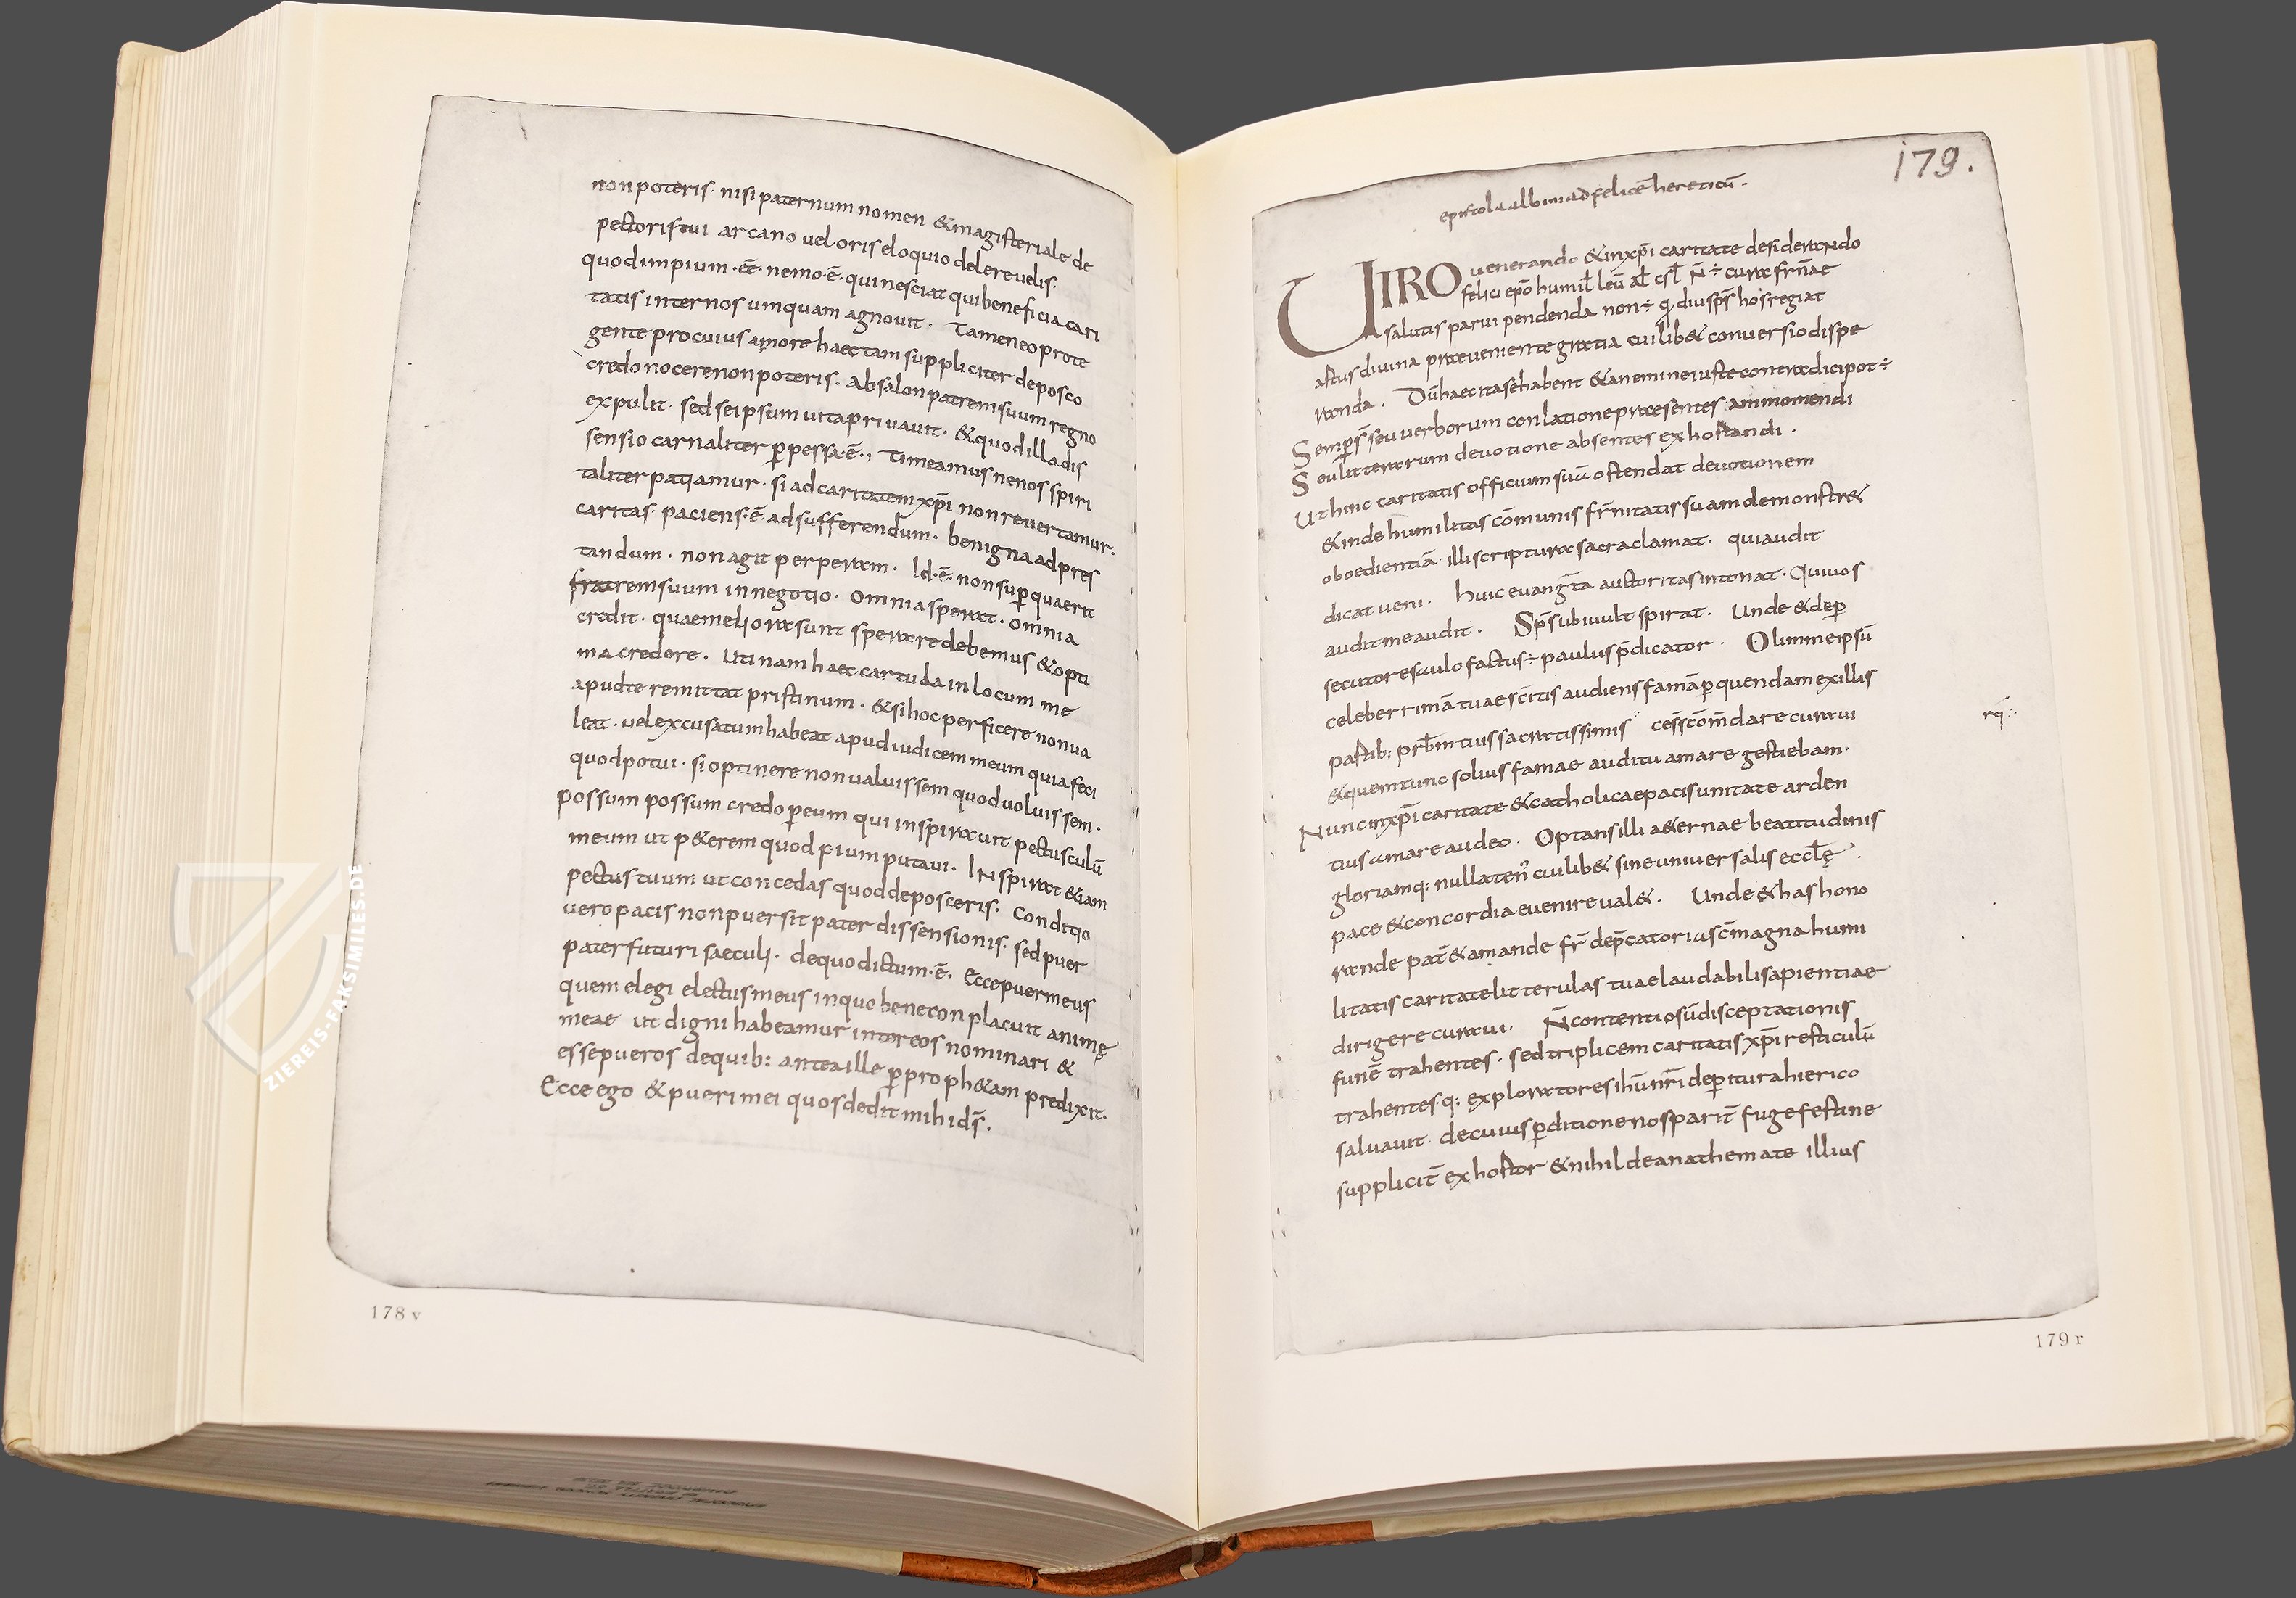 non poteris· nisi paternum nomen & magisteriale de
pectoris tui arcano vel oris eloquio delere velis·
quod impium·eē· nemo·ē· qui nesciat qui beneficia cari
tatis internos umquam agnouit· Tamen eo prote
gente pro cuius amore haec tam suppliciter deposco
credo nocere non poteris· absalon patrem suum regno
expulit· sed se ipsum uita priuauit· & quod illa dis
sensio carnaliter ꝑpessa·ē·, Timeamus ne nos spiri
taliter patiamur· si ad caritatem xp̄i non reuertamur·
caritas paciens·ē· ad sufferendum· benigna ad pres
tandum· non agit perperam· Id·ē· non suꝑ quaerit
fratrem suum in negotio· omnia sperat· omnia
credit· quae meliora sunt sperare debemus & opti
ma credere· Utinam haec cartula in locum me
apud te remittat pristinum· & si hoc perficere non ua
leat· uel excusatum habeat apud iudicem meum quia feci
quod potui· si optinere non ualuissem quod uoluissem·
possum possum credo ꝑ eum qui inspirauit pectusculū
meum ut p&erem quod pium putaui· INspirat &iam
pectus tuum ut concedas quod deposceris· Conditio
uero pacis non puer sit pater dissensionis· sed puer
pater futuri saeculi· de quo dictum·ē· Ecce puer meus
quem elegi electus meus in quo bene con placuit animę
meae ut digni habeamur inter eos nominari &
esse pueros de quib: ante a ille ꝑ proph&am predixit·
Ecce ego & pueri mei quos dedit mihi dſ̄·
178 v
179.
epistola albini ad felicē hereticū·
UIRO uenerando & in xp̄i caritate desiderando
felici epō humil leū al csl N̄ ÷ curae fr̄nae
salutis parui pendenda non ÷ q, diu sps̄ hos regiat
astus diuina praeueniente gratia cuilib& conuersio dispe
randa· Dū haec ita se habent & a nemine iuste contradici pot÷
Semp̄s seu uerborum conlatione praesentes ammonendi
Seu litterarum deuotione absentes exhortandi·
Ut hinc caritatis officium suū ostendat deuotionem
& inde humilitas cōmunis fr̄nitatis suam demonstr&
oboedientiā· illi scriptura sacra clamat· qui audit
dicat ueni· huic euang̅ta auctoritas intonat· Qui uos
audit me audit· Sp̄s ubi uult spirat· Unde & de ꝑ
secutore subito factus ÷ paulus p̄dicator· Olim me ipsū
celeberrimā tuae sc̄itis audiens famā ꝑ quendam ex illis
pastib: prb̄m tuis sacratissimis cess̄ cōm̄dare curaui
& quem tunc solius famae auditu amare gestiebam·
rq
Nunc in xp̄i caritate & catholicae pacis unitate arden
tius amare audeo· Optans illi a&ernae beatitudinis
gloriamq: nullaten' cuilib& sine uniuersalis eccl̄ę
pace & concordia euenire ual&· Unde & has hono
rande pat̄ & amande fr̄ dep̄catorias c̄ magna humi
litatis caritate litterulas tuae laudabili sapientiae
dirigere curaui· N̄ contentiosū disceptationis
funē trahentes· sed triplicem caritatis xp̄i resticulū
trahentes·q: exploratores ihū nr̄i de ꝑitura hierico
saluauit· de cuius ꝑditione nos parit̄ fuge festine
supplicit̄ exhortor & nihil de anathemate illius
179 r
ZIEREIS-FAKSIMILES.DE